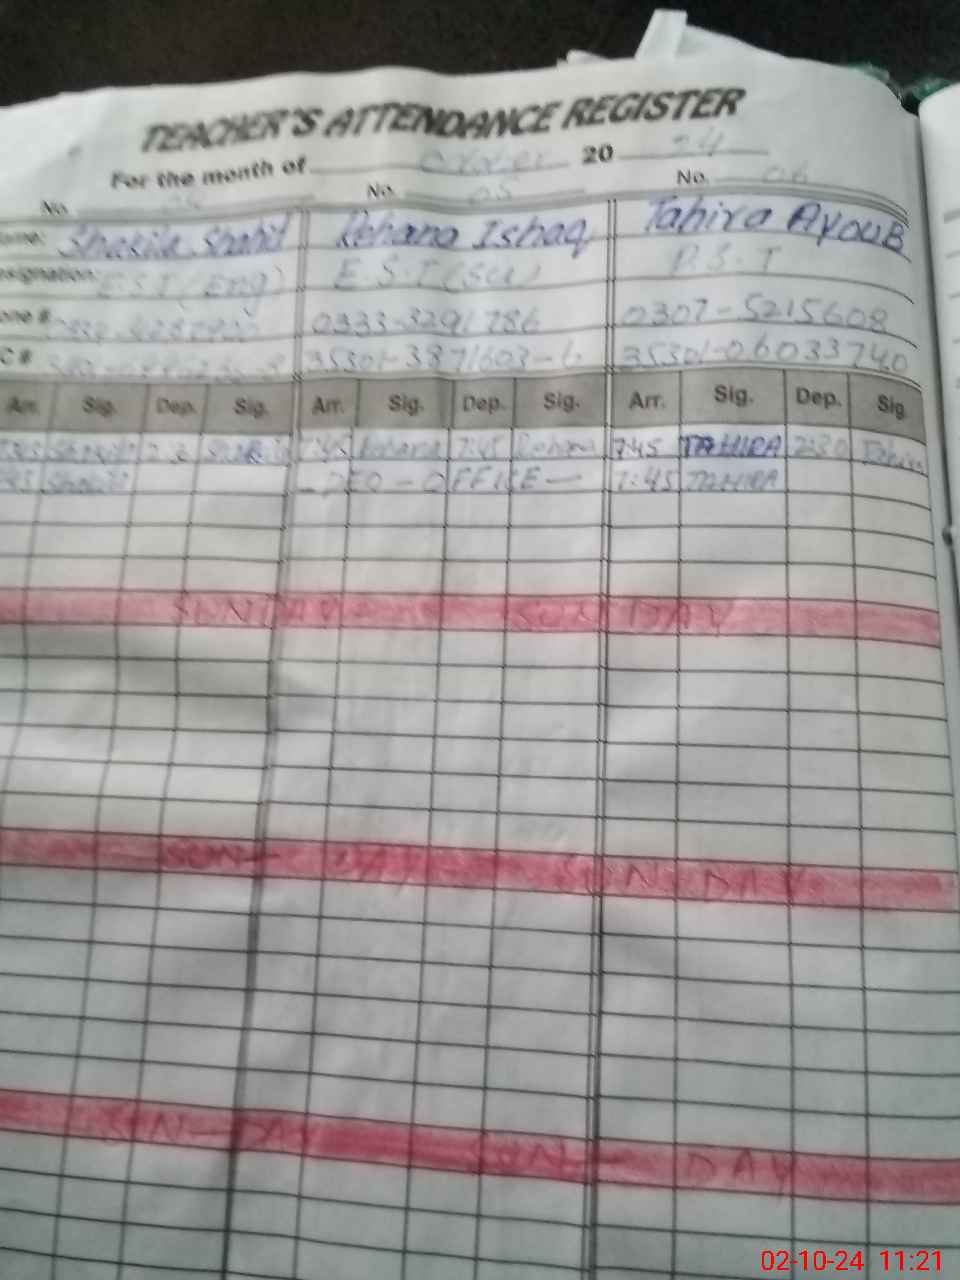 TEACHER'S ATTENDANCE REGISTER
For the month of October 20 24
No. No. 05 No. 06
Name: Shakila Shahid Rehana Ishaq Tahira AYOUB
Designation: E.S.T (Eng) E.S.T (Sci) P.S.T
Phone # 0333-3291786 0307-5215608
C # 35301-3871603-6 35301-06033740
Arr. Sig. Dep. Sig. Arr. Sig. Dep. Sig. Arr. Sig. Dep. Sig.
Shakila Shakila 7:45 Rehana 7:45 Rehana 7:45 TAHIRA 2:30 Tahira
- DEO - OFFICE - 7:45 TAHIRA
SUNDAY SUNDAY
SUN- DAY SUN-DAY
SUN-DAY SUN- DAY
02-10-24 11:21